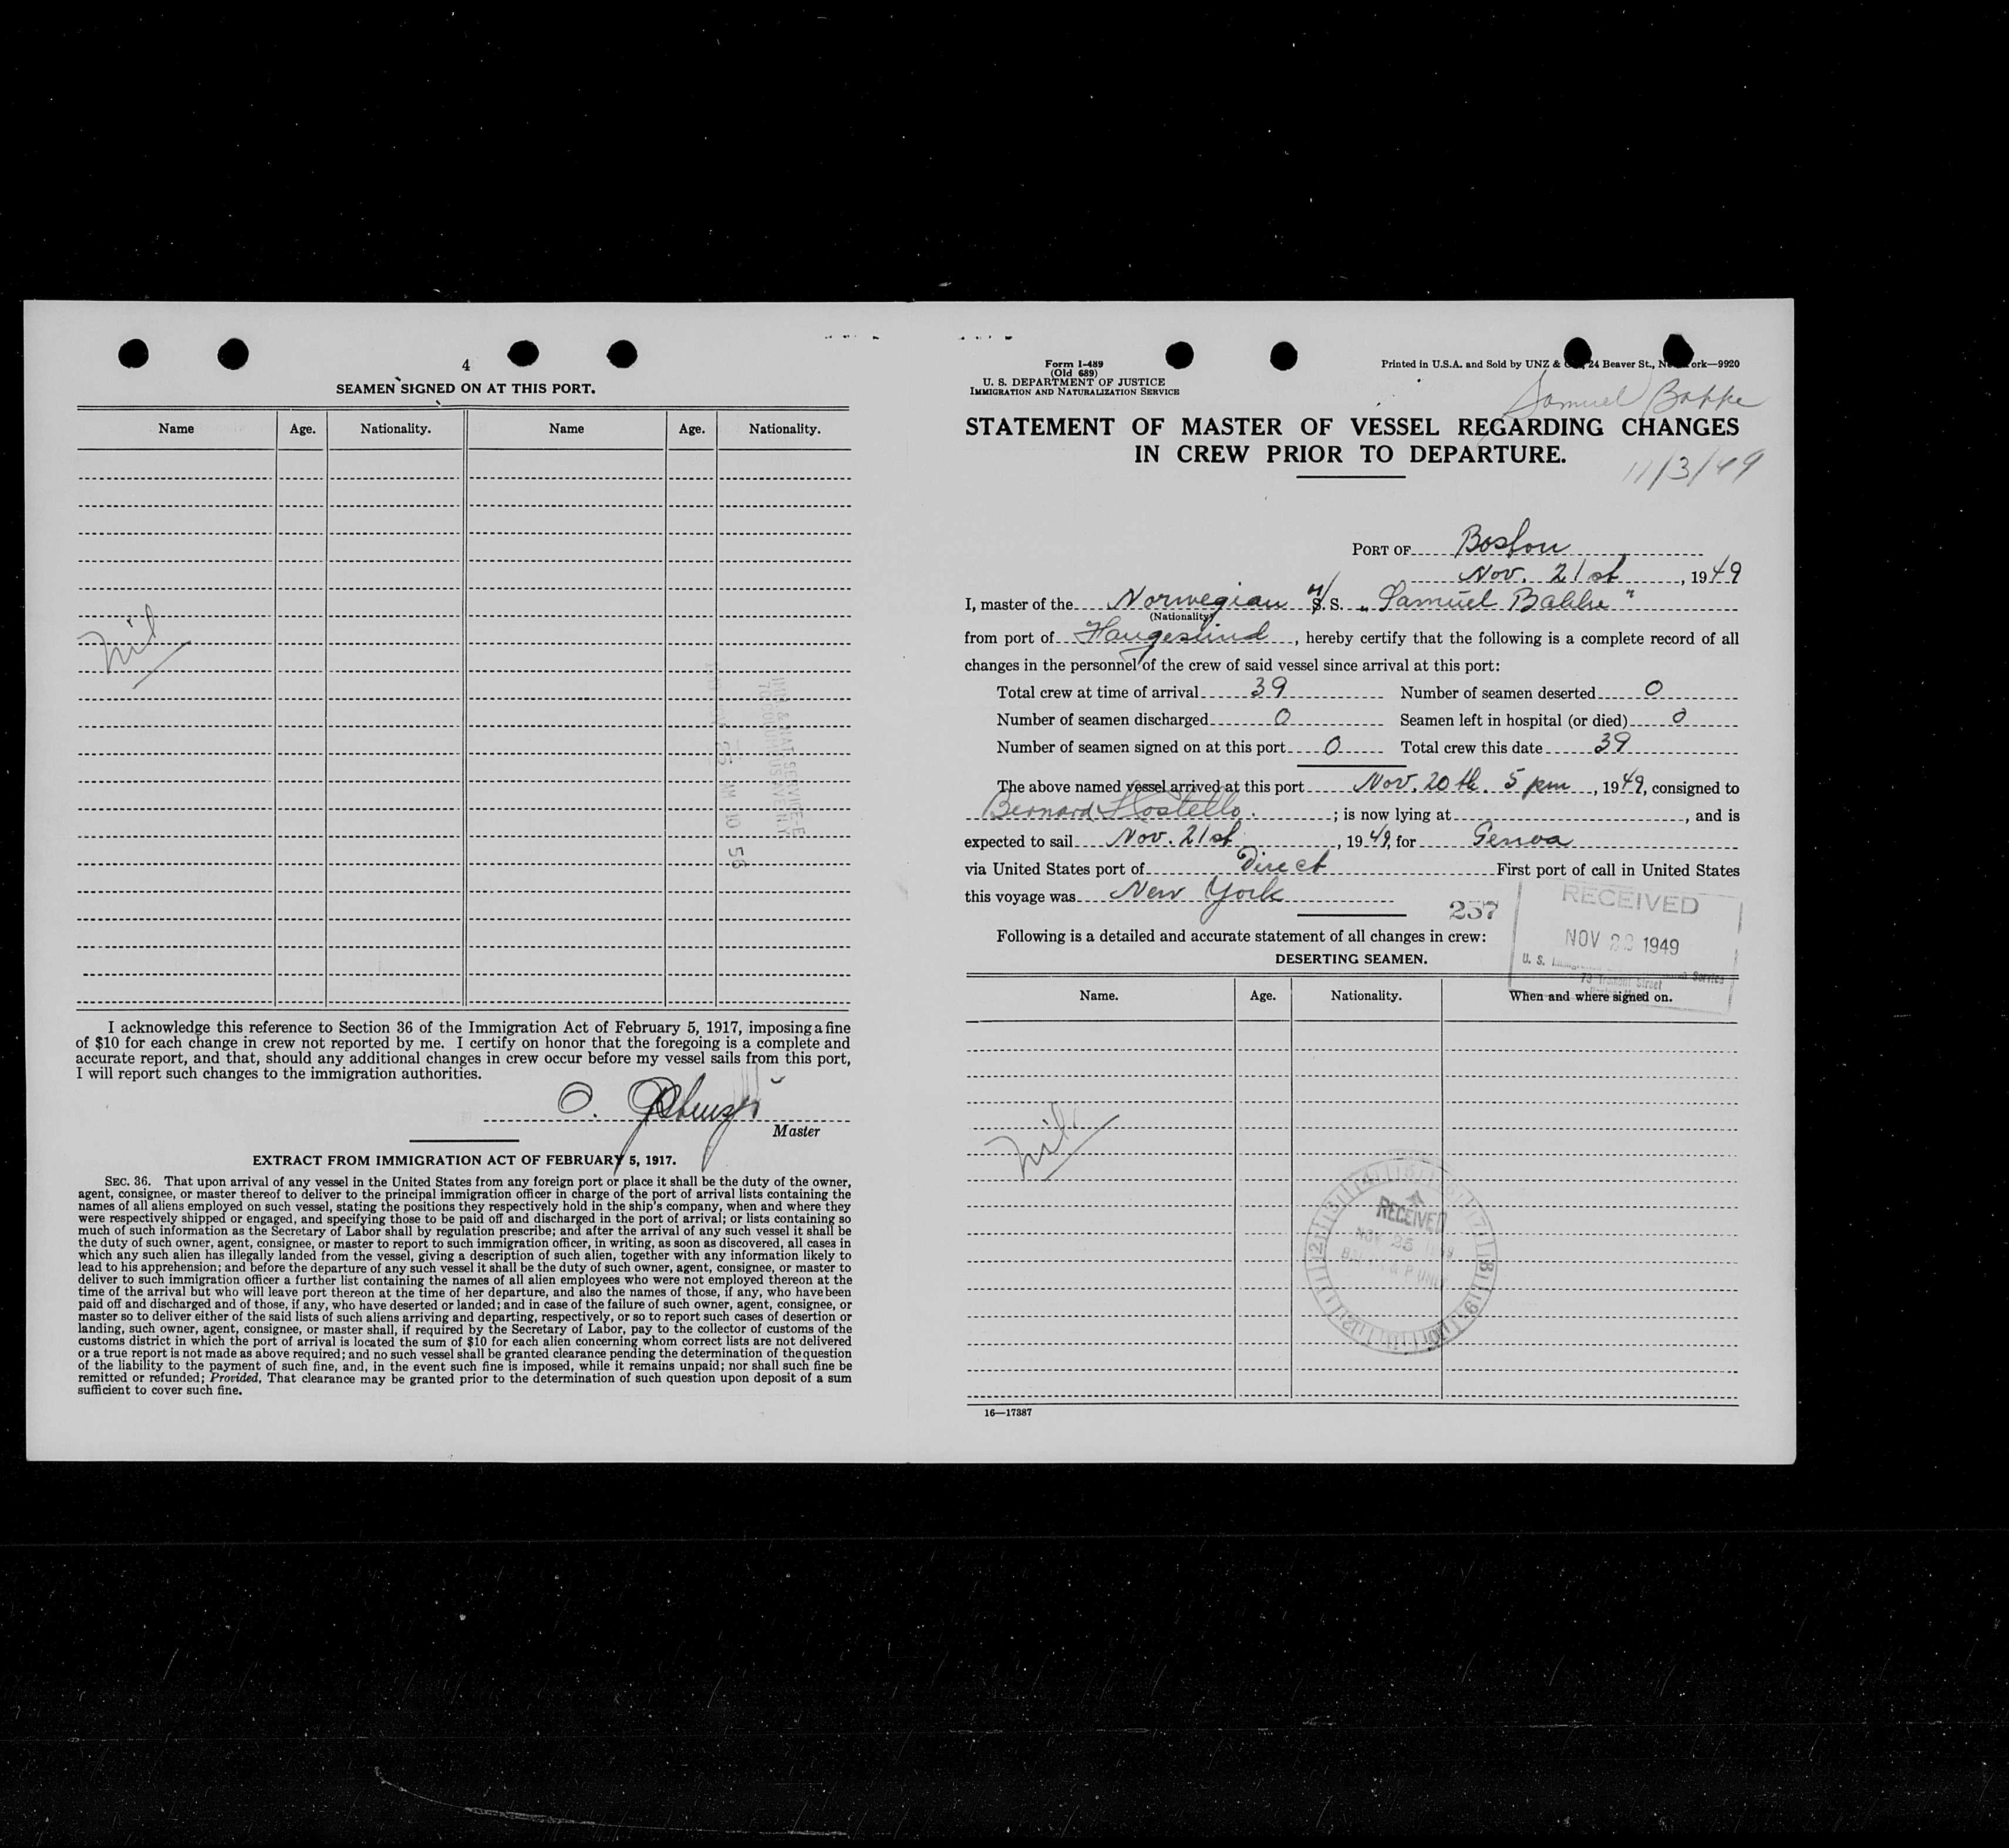 4
SEAMEN SIGNED ON AT THIS PORT.
Name Age. Nationality. Name Age. Nationality.
nil
IMM. & NAT. SERVICE-E
70 COLUMBUS AVE NY
25 AM 10 56
I acknowledge this reference to Section 36 of the Immigration Act of February 5, 1917, imposing a fine
of $10 for each change in crew not reported by me. I certify on honor that the foregoing is a complete and
accurate report, and that, should any additional changes in crew occur before my vessel sails from this port,
I will report such changes to the immigration authorities.
O.
Master
EXTRACT FROM IMMIGRATION ACT OF FEBRUARY 5, 1917.
SEC. 36. That upon arrival of any vessel in the United States from any foreign port or place it shall be the duty of the owner,
agent, consignee, or master thereof to deliver to the principal immigration officer in charge of the port of arrival lists containing the
names of all aliens employed on such vessel, stating the positions they respectively hold in the ship's company, when and where they
were respectively shipped or engaged, and specifying those to be paid off and discharged in the port of arrival; or lists containing so
much of such information as the Secretary of Labor shall by regulation prescribe; and after the arrival of any such vessel it shall be
the duty of such owner, agent, consignee, or master to report to such immigration officer, in writing, as soon as discovered, all cases in
which any such alien has illegally landed from the vessel, giving a description of such alien, together with any information likely to
lead to his apprehension; and before the departure of any such vessel it shall be the duty of such owner, agent, consignee, or master to
deliver to such immigration officer a further list containing the names of all alien employees who were not employed thereon at the
time of the arrival but who will leave port thereon at the time of her departure, and also the names of those, if any, who have been
paid off and discharged and of those, if any, who have deserted or landed; and in case of the failure of such owner, agent, consignee, or
master so to deliver either of the said lists of such aliens arriving and departing, respectively, or so to report such cases of desertion or
landing, such owner, agent, consignee, or master shall, if required by the Secretary of Labor, pay to the collector of customs of the
customs district in which the port of arrival is located the sum of $10 for each alien concerning whom correct lists are not delivered
or a true report is not made as above required; and no such vessel shall be granted clearance pending the determination of the question
of the liability to the payment of such fine, and, in the event such fine is imposed, while it remains unpaid; nor shall such fine be
remitted or refunded; Provided, That clearance may be granted prior to the determination of such question upon deposit of a sum
sufficient to cover such fine.
Form I-489
(Old 689)
U. S. DEPARTMENT OF JUSTICE
IMMIGRATION AND NATURALIZATION SERVICE
Printed in U.S.A. and Sold by UNZ & 24 Beaver St., ork—9920
Samuel Bakke
STATEMENT OF MASTER OF VESSEL REGARDING CHANGES
IN CREW PRIOR TO DEPARTURE.
11/3/49
PORT OF Boston
Nov. 21st, 1949
I, master of the Norwegian M/S. S. „Samuel Bakke"
(Nationality)
from port of Haugesund, hereby certify that the following is a complete record of all
changes in the personnel of the crew of said vessel since arrival at this port:
Total crew at time of arrival 39 Number of seamen deserted 0
Number of seamen discharged 0 Seamen left in hospital (or died) 0
Number of seamen signed on at this port 0 Total crew this date 39
The above named vessel arrived at this port Nov. 20th. 5 pm, 1949, consigned to
Bernard Costello.; is now lying at , and is
expected to sail Nov. 21st, 1949, for Genoa
via United States port of Direct First port of call in United States
this voyage was New York
237
RECEIVED
NOV 1949
U. S. Service
73 Tremont Street
Following is a detailed and accurate statement of all changes in crew:
DESERTING SEAMEN.
Name. Age. Nationality. When and where signed on.
nil
RECEIVED
NOV 25
16—17387